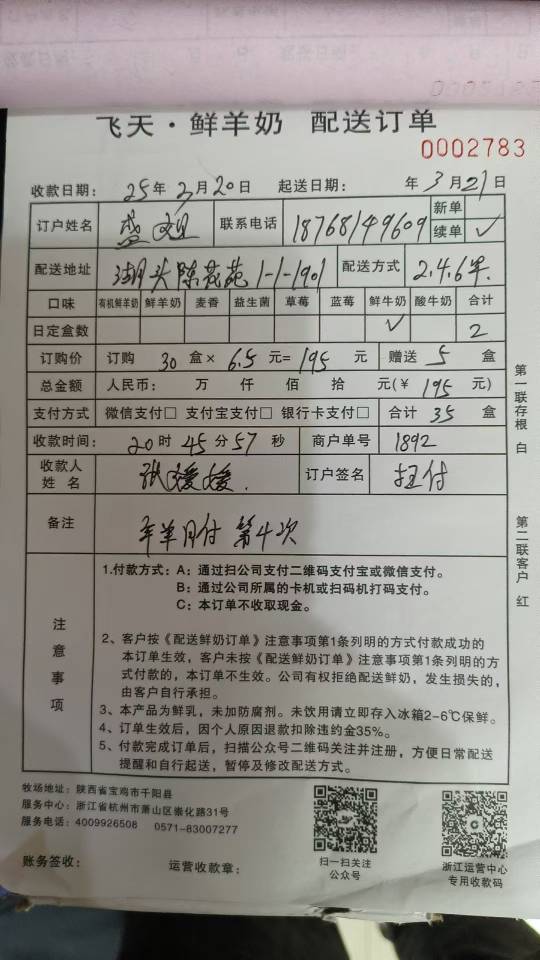 飞天·鲜羊奶 配送订单
0002783
收款日期： 25年3月20日 起送日期： 年3月21日
订户姓名 盛 联系电话 18768149609 新单
续单 ✓
配送地址 湖头陈花苑1-1-1901 配送方式 2.4.6早.
口味 有机鲜羊奶 鲜羊奶 麦香 益生菌 草莓 蓝莓 鲜牛奶 酸牛奶 合计
日定盒数 ✓ 2
订购价 订购 30 盒× 6.5 元= 195 元 赠送 5 盒
总金额 人民币： 万 仟 佰 拾 元(￥ 195 元)
支付方式 微信支付□ 支付宝支付□ 银行卡支付□ 合计 35 盒
收款时间： 20时45分57秒 商户单号 1892
收款人姓名 张媛媛. 订户签名 扫付
备注 年单月付 第4次
第一联存根 白
第二联客户 红
注意事项
1.付款方式：A：通过扫公司支付二维码支付宝或微信支付。
B：通过公司所属的卡机或扫码机打码支付。
C：本订单不收取现金。
2、客户按《配送鲜奶订单》注意事项第1条列明的方式付款成功的
本订单生效，客户未按《配送鲜奶订单》注意事项第1条列明的方
式付款的，本订单不生效。公司有权拒绝配送鲜奶，发生损失的，
由客户自行承担。
3、本产品为鲜乳，未加防腐剂。未饮用请立即存入冰箱2-6℃保鲜。
4、订单生效后，因个人原因退款扣除违约金35%。
5、付款完成订单后，扫描公众号二维码关注并注册，方便日常配送
提醒和自行起送，暂停及修改配送方式。
牧场地址：陕西省宝鸡市千阳县
服务中心：浙江省杭州市萧山区崇化路31号
服务电话：4009926508 0571-83007277
账务签收： 运营收款章：
扫一扫关注
公众号
浙江运营中心
专用收款码